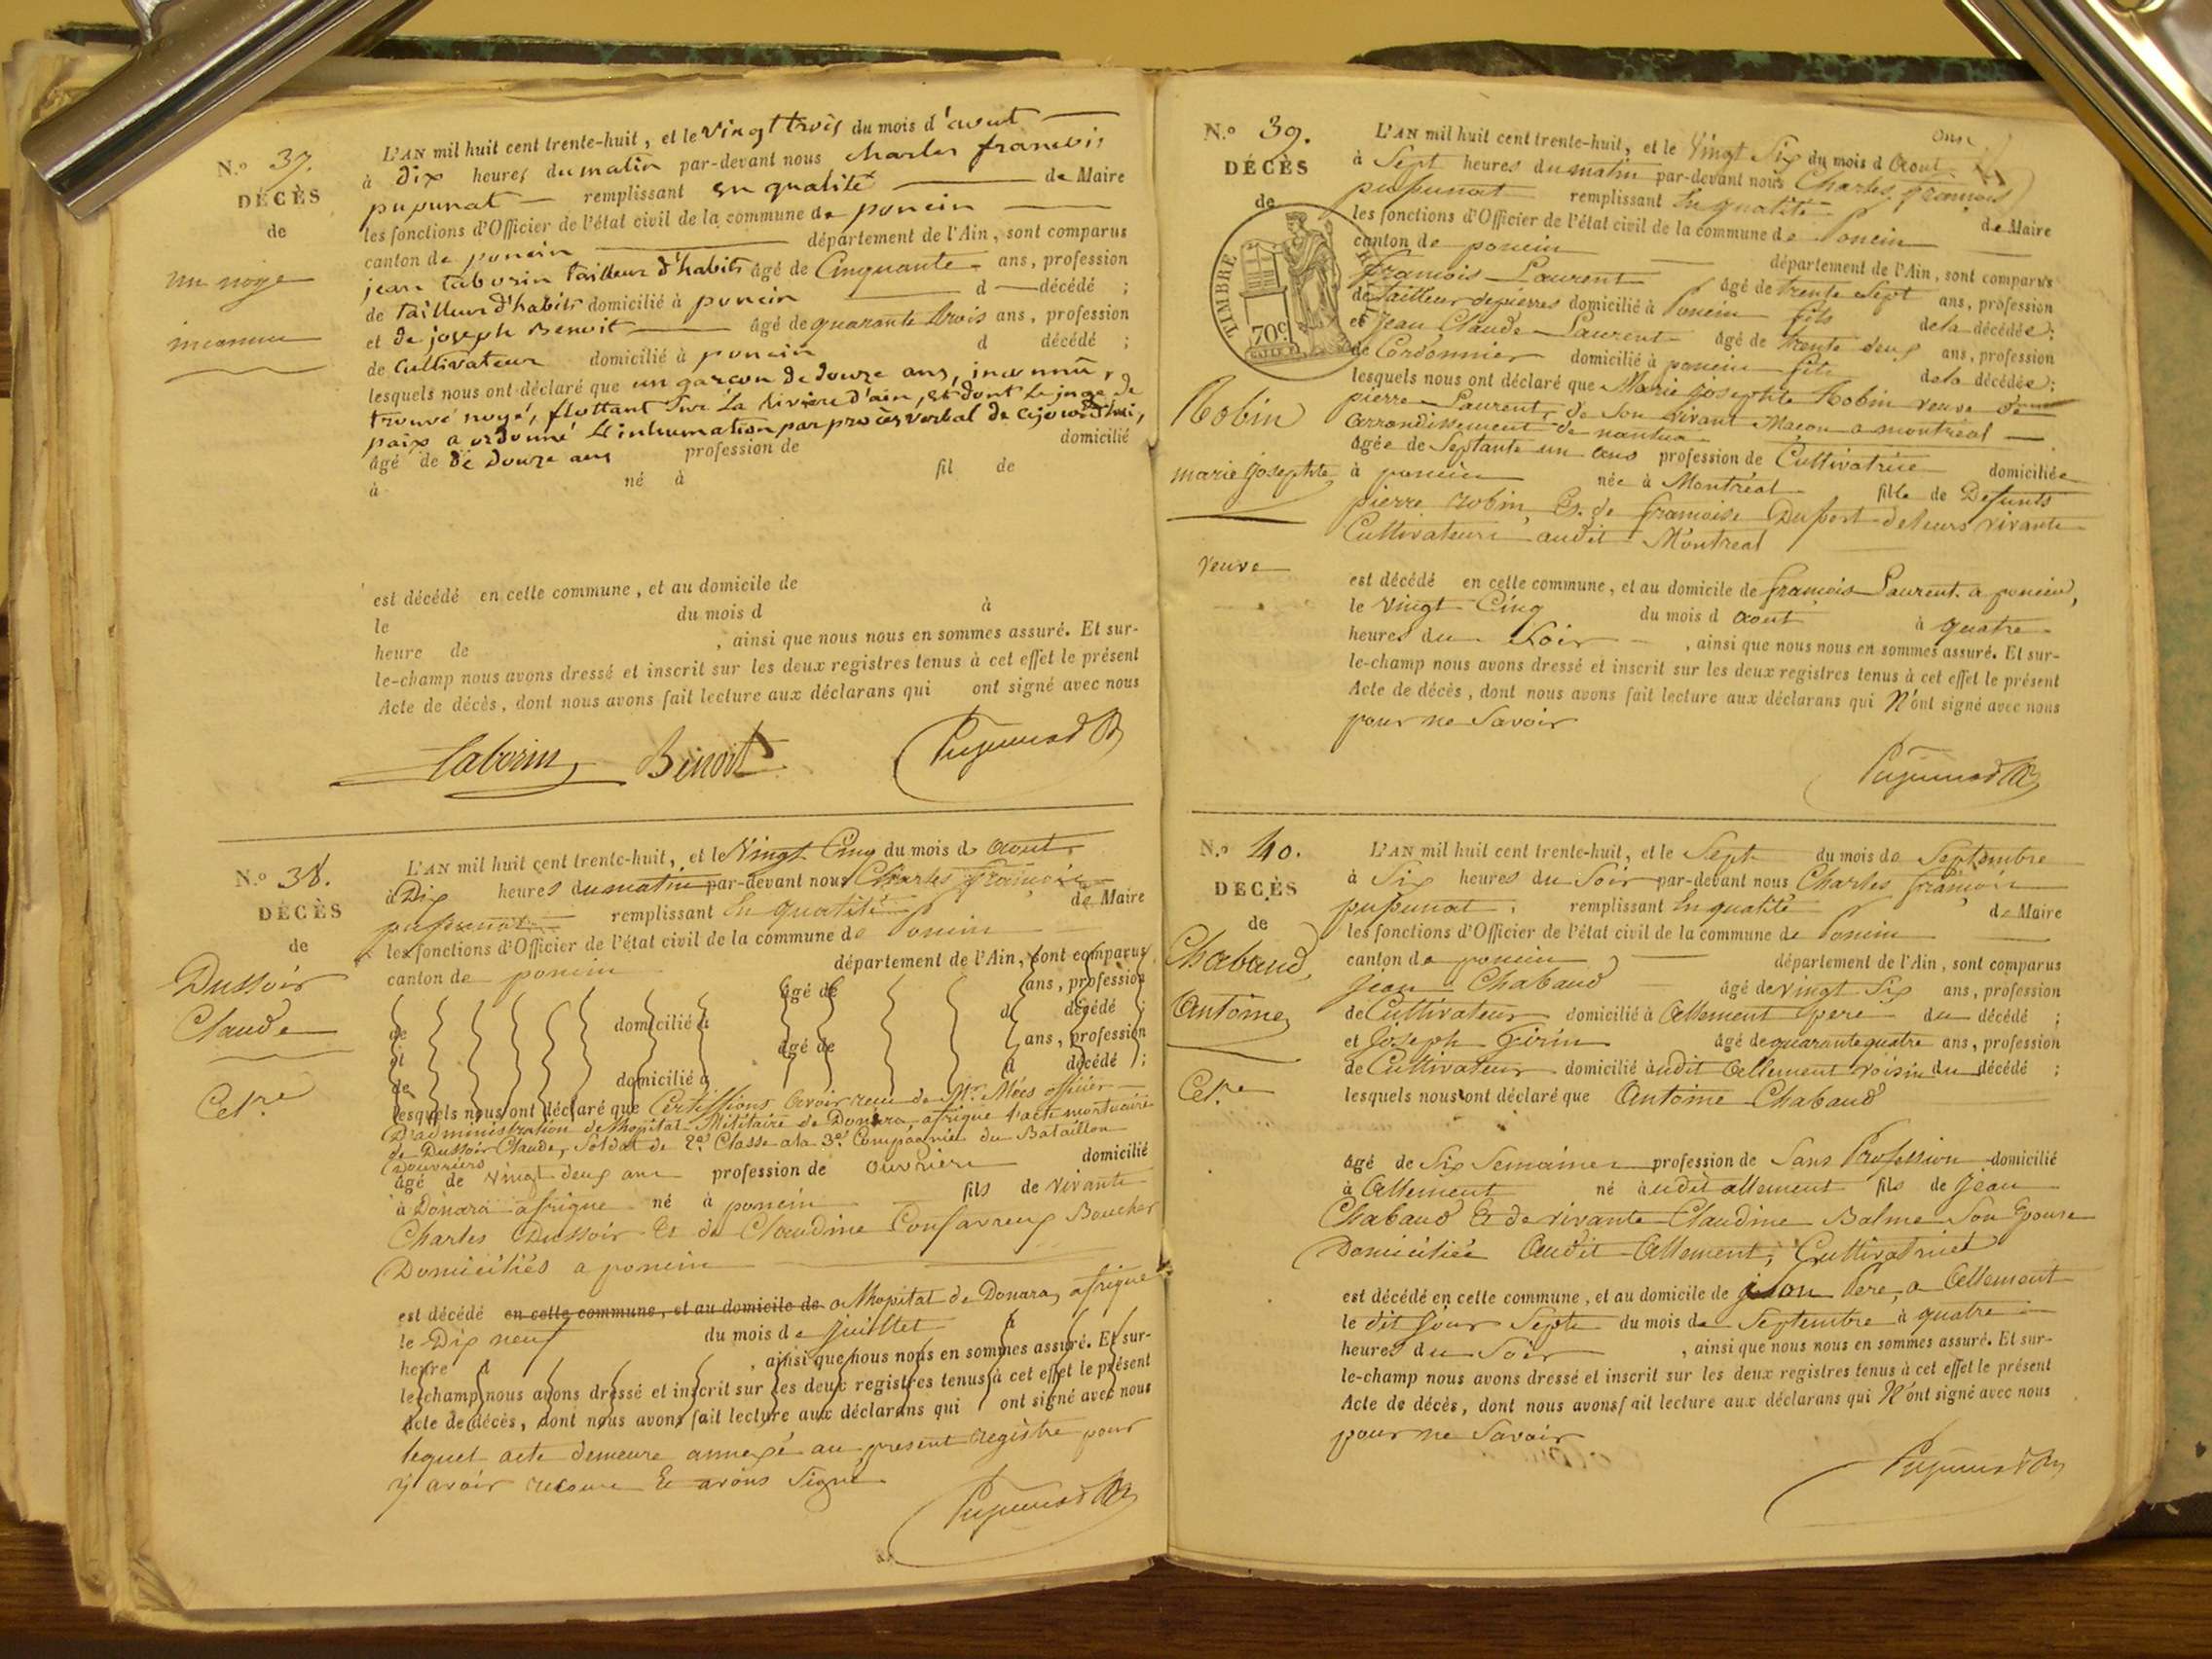 N.o 37.
DÉCÈS
de
un noyé
inconnu
L'AN mil huit cent trente-huit, et le vingt trois du mois d'aout
à dix heures du matin par-devant nous charles francois
pupunat remplissant en qualité de Maire
les fonctions d'Officier de l'état civil de la commune de poncin
canton de poncin département de l'Ain, sont comparus
jean taborin tailleur d'habits âgé de Cinquante ans, profession
de tailleur d'habits domicilié à poncin d décédé ;
et de joseph Benoit âgé de quarante trois ans, profession
de Cultivateur domicilié à poncin d décédé ;
lesquels nous ont déclaré que un garçon de douze ans, inconnu,
trouvé noyé, flottant sur la rivière d'ain, et dont le juge de
paix a ordonné l'inhumation par procès verbal de cejourd'hui,
âgé de de douze ans profession de domicilié
à né à fil de
est décédé en celle commune, et au domicile de
le du mois d à
heure de , ainsi que nous nous en sommes assuré. Et sur-
le-champ nous avons dressé et inscrit sur les deux registres tenus à cet effet le présent
Acte de décès, dont nous avons fait lecture aux déclarans qui ont signé avec nous
Taborin Benoit Pupunat
N.o 38.
DÉCÈS
de
Dussoir
Claude
Cel.re
L'AN mil huit cent trente-huit, et le Vingt Cinq du mois d aout
à Dix heures du matin par-devant nous Charles François
pupunat remplissant En qualité de Maire
les fonctions d'Officier de l'état civil de la commune de Poncin
canton de poncin département de l'Ain, sont comparus
âgé de ans, profession
de domicilié à d décédé ;
et âgé de ans, profession
de domicilié à d décédé ;
lesquels nous ont déclaré que Certiffions avoir reçu de Mr. Mées officier
D'administration de l'hopital Militaire de Donéra afrique l'acte mortuaire
de Dussoir Claude, Soldat de 2e. Classe a la 3e. Compagnie du Bataillon
D'ouvriers
âgé de vingt deux ans profession de ouvrier domicilié
à Donara afrique né à poncin fils de vivants
Charles Dussoir Et de Claudine Confavreux Boucher
Domiciliés a poncin
est décédé en celle commune, et au domicile de a l'hopital de Donara, afrique
le Dix neuf du mois de juillet à
heure d , ainsi que nous nous en sommes assuré. Et sur-
le-champ nous avons dressé et inscrit sur les deux registres tenus à cet effet le présent
Acte de décès, dont nous avons fait lecture aux déclarans qui ont signé avec nous
lequel acte demeure annexé au present registre pour
y avoir recours Et avons Signé
Pupunat
N.o 39.
DÉCÈS
de
TIMBRE
70c.
Robin
marie josephte
veuve
L'AN mil huit cent trente-huit, et le Vingt Six du mois d Aout
à Sept heures du matin par-devant nous Charles françois
pupunat remplissant En qualité de Maire
les fonctions d'Officier de l'état civil de la commune de Poncin
canton de poncin département de l'Ain, sont comparus
francois Laurent âgé de trente Sept ans, profession
de Tailleur de pierres domicilié à Poncin fils de la décédée ;
et Jean Claude Laurent âgé de trente deux ans, profession
de Cordonnier domicilié à poncin fils de la décédée ;
lesquels nous ont déclaré que Marie josephte Robin veuve de
pierre Laurent, de Son vivant Maçon a montréal
arrondissement de nantua
âgée de Septante un ans profession de Cultivatrice domiciliée
à poncin née à Montréal fille de Defunts
pierre Robin, Et. de francoise Duport de leurs vivants
Cultivateurs audit Montreal
est décédé en celle commune, et au domicile de francois Laurent a poncin,
le vingt Cinq du mois d aout à quatre
heures du Soir , ainsi que nous nous en sommes assuré. Et sur-
le-champ nous avons dressé et inscrit sur les deux registres tenus à cet effet le présent
Acte de décès, dont nous avons fait lecture aux déclarans qui N'ont signé avec nous
pour ne Savoir
Pupunat
N.o 40.
DÉCÈS
de
Chabaud
Antoine
Cel.re
L'AN mil huit cent trente-huit, et le Sept du mois de Septembre
à Six heures du Soir par-devant nous Charles françois
pupunat, remplissant En qualité de Maire
les fonctions d'Officier de l'état civil de la commune de Poncin
canton de poncin département de l'Ain, sont comparus
Jean Chabaud âgé de vingt Six ans, profession
de Cultivateur domicilié à Allement père du décédé ;
et Joseph Girin âgé de quarante quatre ans, profession
de Cultivateur domicilié audit Allement voisin du décédé ;
lesquels nous ont déclaré que Antoine Chabaud
âgé de Six Semaines profession de Sans Profession domicilié
à Allement né audit allement fils de Jean
Chabaud Et de vivante Claudine Balme Son Epouse
Domiciliée Audit Allement, Cultivatrice
est décédé en celle commune, et au domicile de jean Pere, a Allement
le dit jour Sept du mois de Septembre à quatre
heures du Soir , ainsi que nous nous en sommes assuré. Et sur-
le-champ nous avons dressé et inscrit sur les deux registres tenus à cet effet le présent
Acte de décès, dont nous avons fait lecture aux déclarans qui N'ont signé avec nous
pour ne Savoir
Pupunat